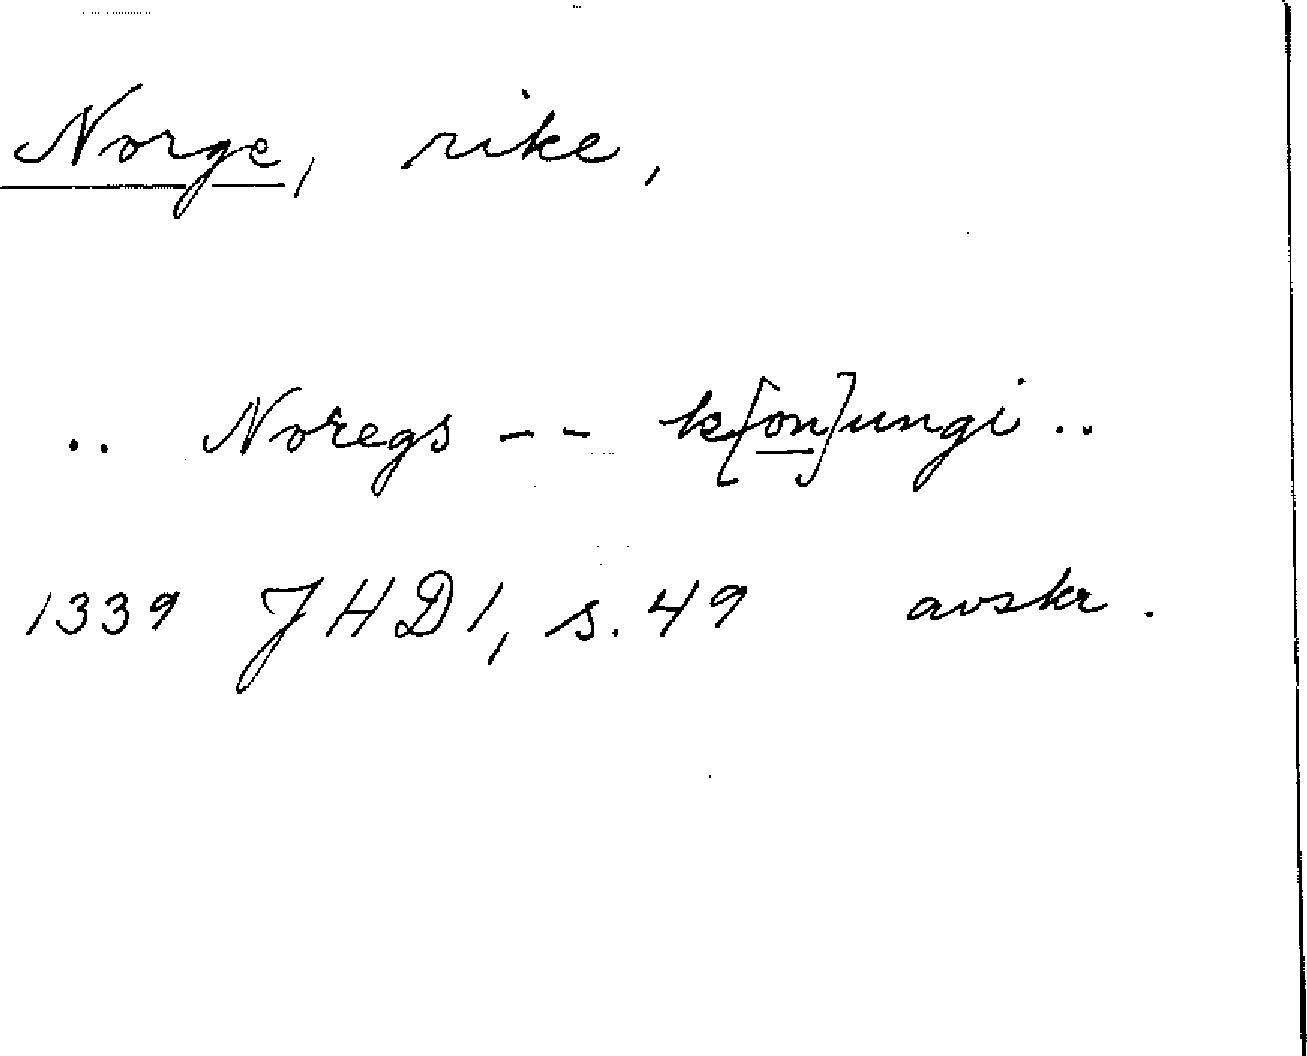 Norge, rike,
.. Noregs -- k[on]ungi ..
1339 JHD 1, s. 49 avskr.